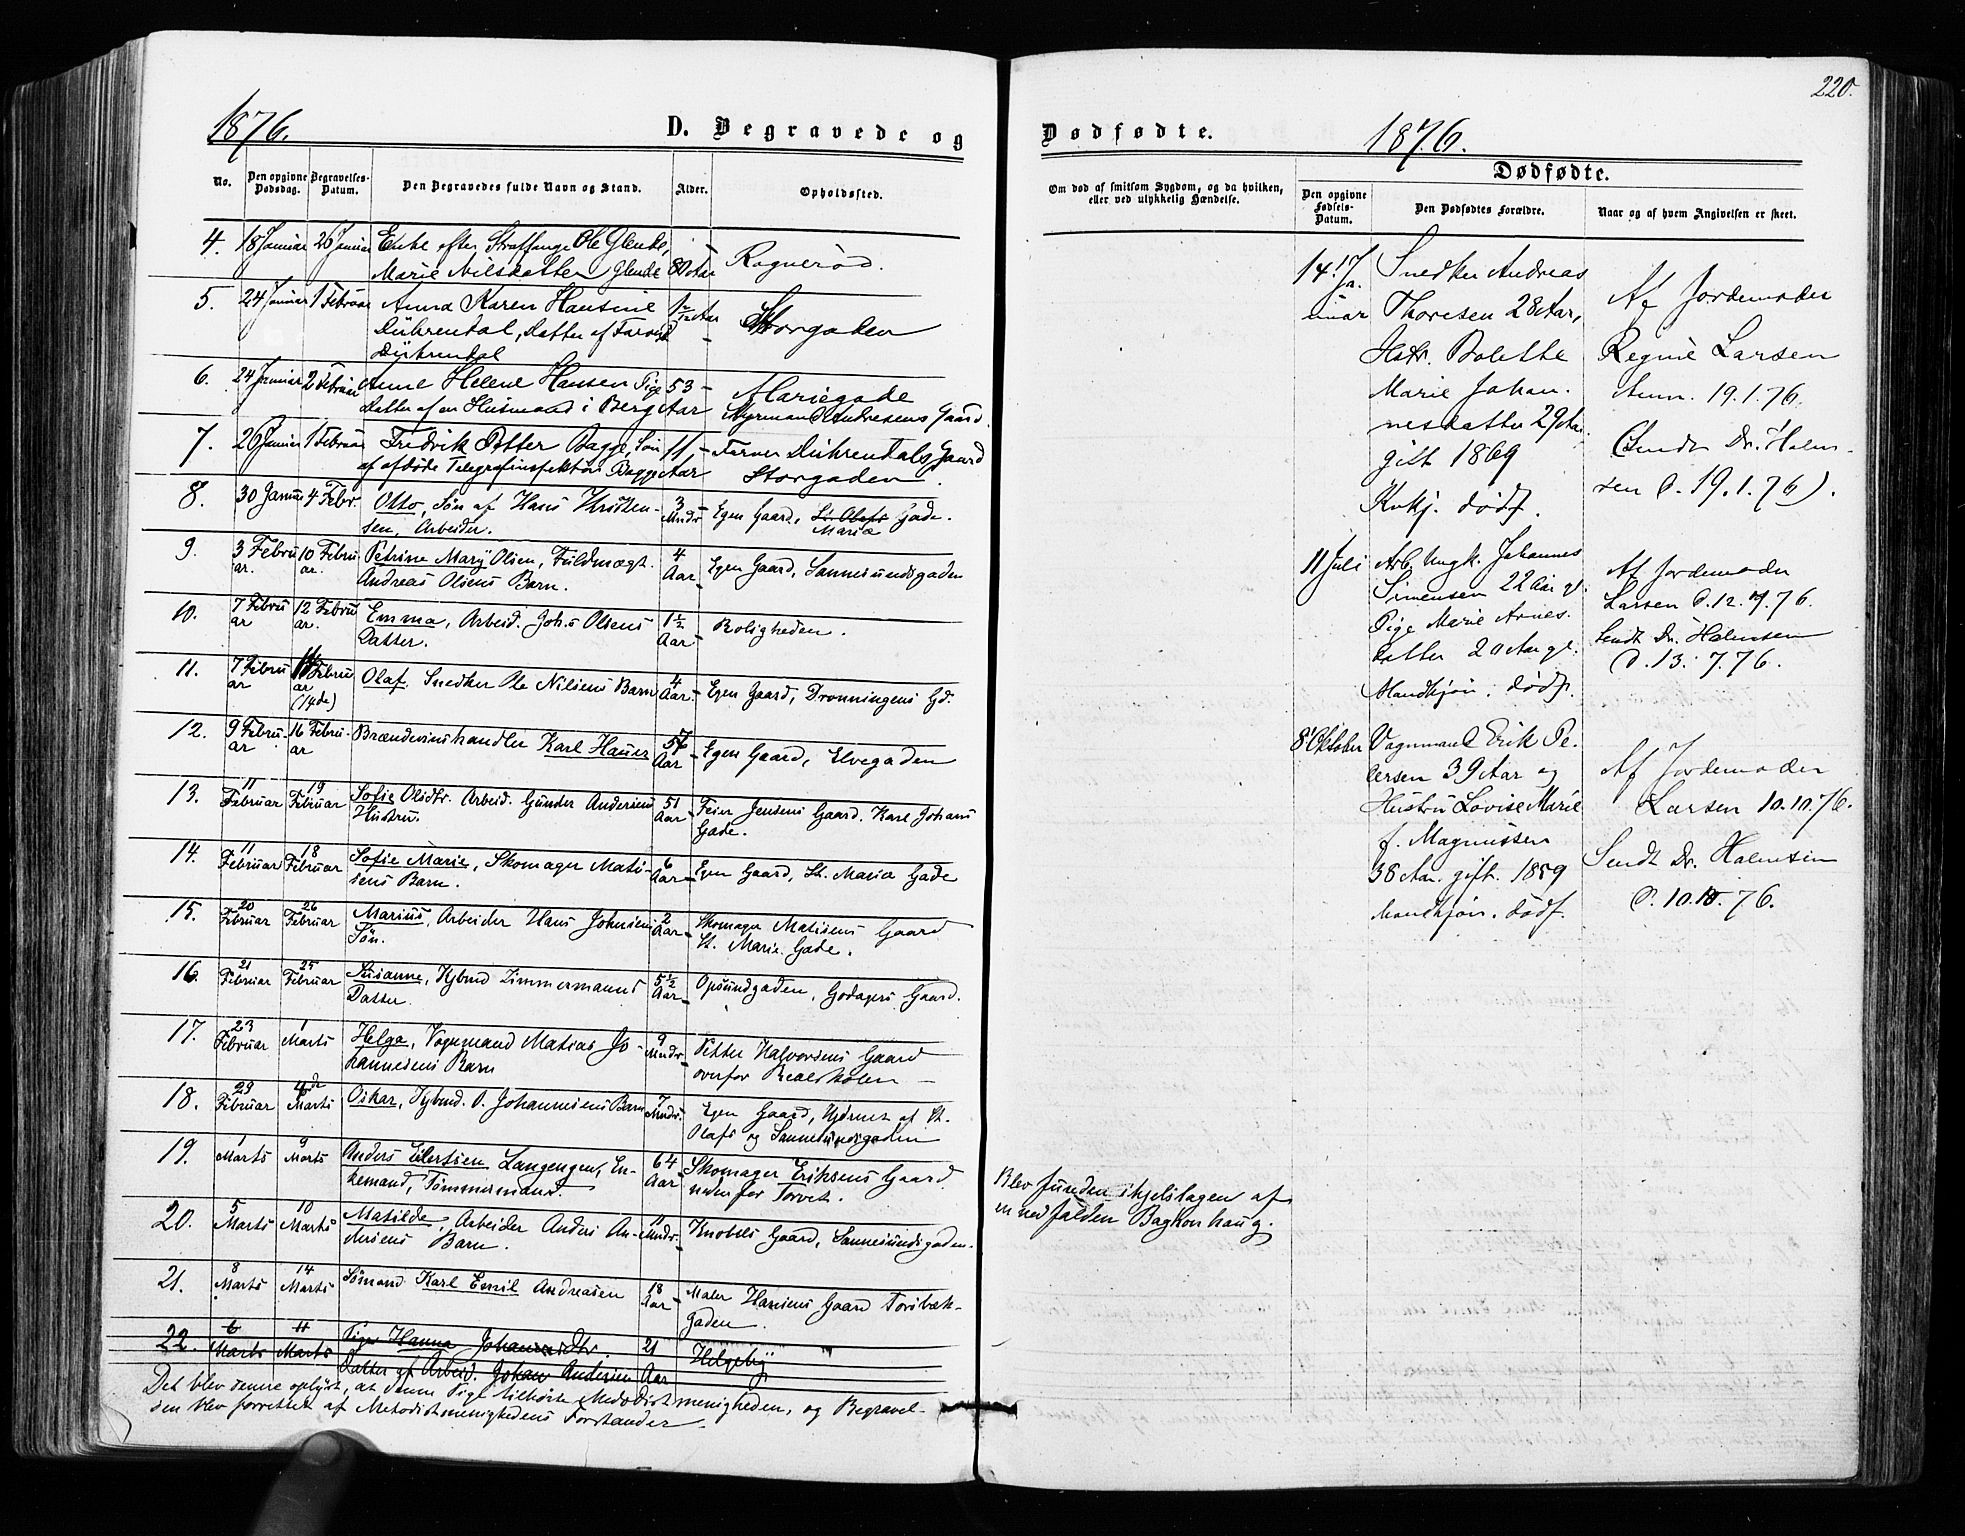 220.
1876.
D. Begravede og
No.
Den opgivne Dødsdag.
Begravelses-Datum.
Den Begravedes fulde Navn og Stand.
Alder.
Opholdssted.
4. 18 Januar 26 Januar Enke efter Straffange Ole Glende, 80 Aar Ragnerød.
Marie Nilsdatter Glende
5. 24 Januar 1 Februar Anna Karen Hansine Aar Storgaden
Dührendal, Datter af Farver
Dührendal
6. 24 Januar 2 Februar Anne Helene Hansen Pige 53 Aar Mariegade
Datter af en Husmand i Berg Styrmand Andresens Gaard.
7. 26 Januar 1 Februar Fredrik Petter Bagge, Søn 11 Aar Farver Dührendals Gaard
af afdøde Telegrafinspektør Bagge Storgaden.
8. 30 Januar 4 Febr. Otto, Søn af Hans Kristen- 3 Mndr Egen Gaard, St. Olafs Gade.
sen, Arbeider. Maria
9. 3 Februar. 10 Februar. Petrine Mary Olsen, Fuldmægt. 4 Aar Egen Gaard, Sannesundsgaden
Andreas Olsens Barn.
10. 7 Februar 12 Februar. Emma, Arbeid. Johs Olsens 1½ Aar Roligheden.
Datter.
11. 7 Februar Februar (14de) Olaf. Snedker Ole Nilsens Barn 4 Aar Egen Gaard, Dronningens Gd.
12. 9 Februar 16 Februar Brændevinshandler Karl Hauer Aar Egen Gaard, Elvegaden
13. 11 Februar 19 Februar Sofie Olsdtr. Arbeid. Gunder Andersens 51 Aar Feier Jensens Gaard. Karl Johans
Hustru. Gade.
14. 11 Februar 18 Februar Sofie Marie, Skomager Mati- 6 Aar Egen Gaard, St. Maria Gade
sens Barn.
15. 20 Februar 26 Februar Marius, Arbeider Hans Johnsens 2 Aar Skomager Matisens Gaard
Søn. St. Marie Gade.
16. 21 Februar 25 Februar Susanne, Kjbmd Zimmermanns 5½ Aar Opsundgaden, Godagers Gaard.
Datter.
17. 23 Februar 1 Marts Helga, Vognmand Matias Jo- 9 Mndr Petter Halvorsens Gaard
hannesens Barn overfor Realskolen
18. 29 Februar 4de Marts Oskar, Kjbmd. O. Johannesens Barn 7 Mndr. Egen Gaard, Hjørnet af St.
Olafs og Sannesundsgaden
19. 1 Marts 9 Marts Anders Eilertsen Langengen, En- 64 Aar Skomager Eriksens Gaard
kemand, Tømmermand. nedenfor Torvet.
20. 5 Marts 10 Marts Matilde, Arbeider Anders An- Mndr. Knobels Gaard, Sannesundsgaden.
dersens Barn.
21. 8 Marts 14 Marts Sømand Karl Emil Andreasen 18 Aar Maler Hansens Gaard Torsbæk-
gaden.
22. 6 Marts 11 Marts Pige Hanna Johannesdtr. 21 Aar Helgeby
Datter af Arbeid. Johan Andersen
Det blev senere oplyst, at denne Pige tilhørte Metodistmenigheden, og Begravel-
sen blev forrettet af Metodistmenighedens Forstander.
Dødfødte.
1876.
Om død af smitsom Sygdom, og da hvilken,
eller ved ulykkelig Hændelse.
Dødfødte.
Den opgivne Fødsels-Datum.
Den Dødfødtes Forældre.
Naar og af hvem Angivelsen er skeet.
14 Ja-
nuar
Snedker Andreas
Thoresen 28 Aar,
Hstr. Bolette
Marie Johan-
nesdatter 29 Aar
gift 1869
Kvkj. dødf.
Af Jordemoder
Regine Larsen
Anm. 19.1.76.
(Sendt Dr. Holm-
sen d. 19.1.76).
11 Juli
Arb. Ungk. Johannes
Simensen 22 Aar gl.
Pige Marie Arnes-
datter 20 Aar gl.
Mandkjøn. dødf.
Af Jordemoder
Larsen d. 12.7.76.
Sendt Dr. Holmsen
d. 13.7.76.
8 Oktober
Vognmand Erik Pe-
tersen 39 Aar og
Hustru Lovise Marie
f. Magnussen
38 Aar. gift. 1859
Mandkjøn. dødf.
Af Jordemoder
Larsen 10.10.76.
Sendt Dr. Holmsen
d. 10.10.76.
Blev funden ihjelslagen af
en nedfalden